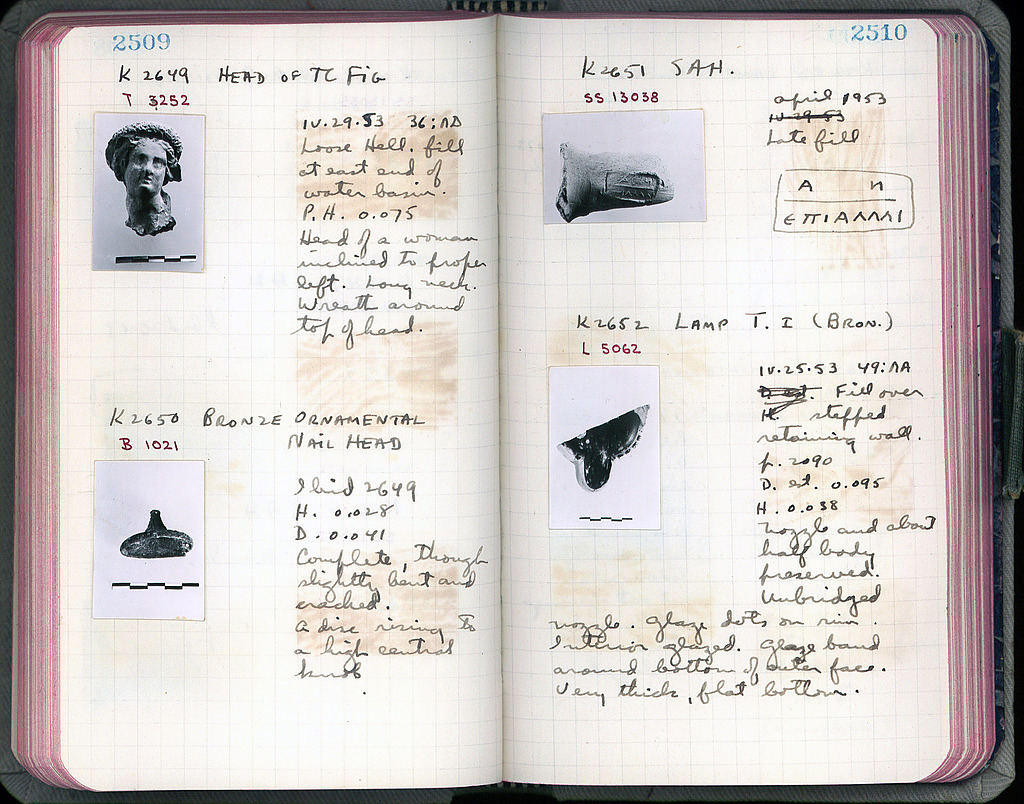 2509
K 2649 HEAD OF TC FIG
T 3252
IV.29.53 36:ΛΔ
Loose Hell. fill
at east end of
water basin.
P.H. 0.075
Head of a woman
inclined to proper
left. Long neck.
Wreath around
top of head.
K2650 BRONZE ORNAMENTAL
NAIL HEAD
B 1021
Ibid 2649
H. 0.028
D. 0.041
Complete, though
slightly bent and
cracked.
A disc rising to
a high central
knob
2510
K2651 SAH.
SS 13038
April 1953
IV.29.53
Late fill
Α Π
ЄΠΙΑΛΛΙ
K2652 LAMP T. I (BRON.)
L 5062
IV.25.53 49:ΛΑ
Fill over
H. stepped
retaining wall.
p. 2090
D. est. 0.095
H. 0.038
Nozzle and about
half body
preserved.
Unbridged
nozzle. Glaze dots on rim.
Interior glazed. Glaze band
around bottom of outer face.
Very thick, flat bottom.